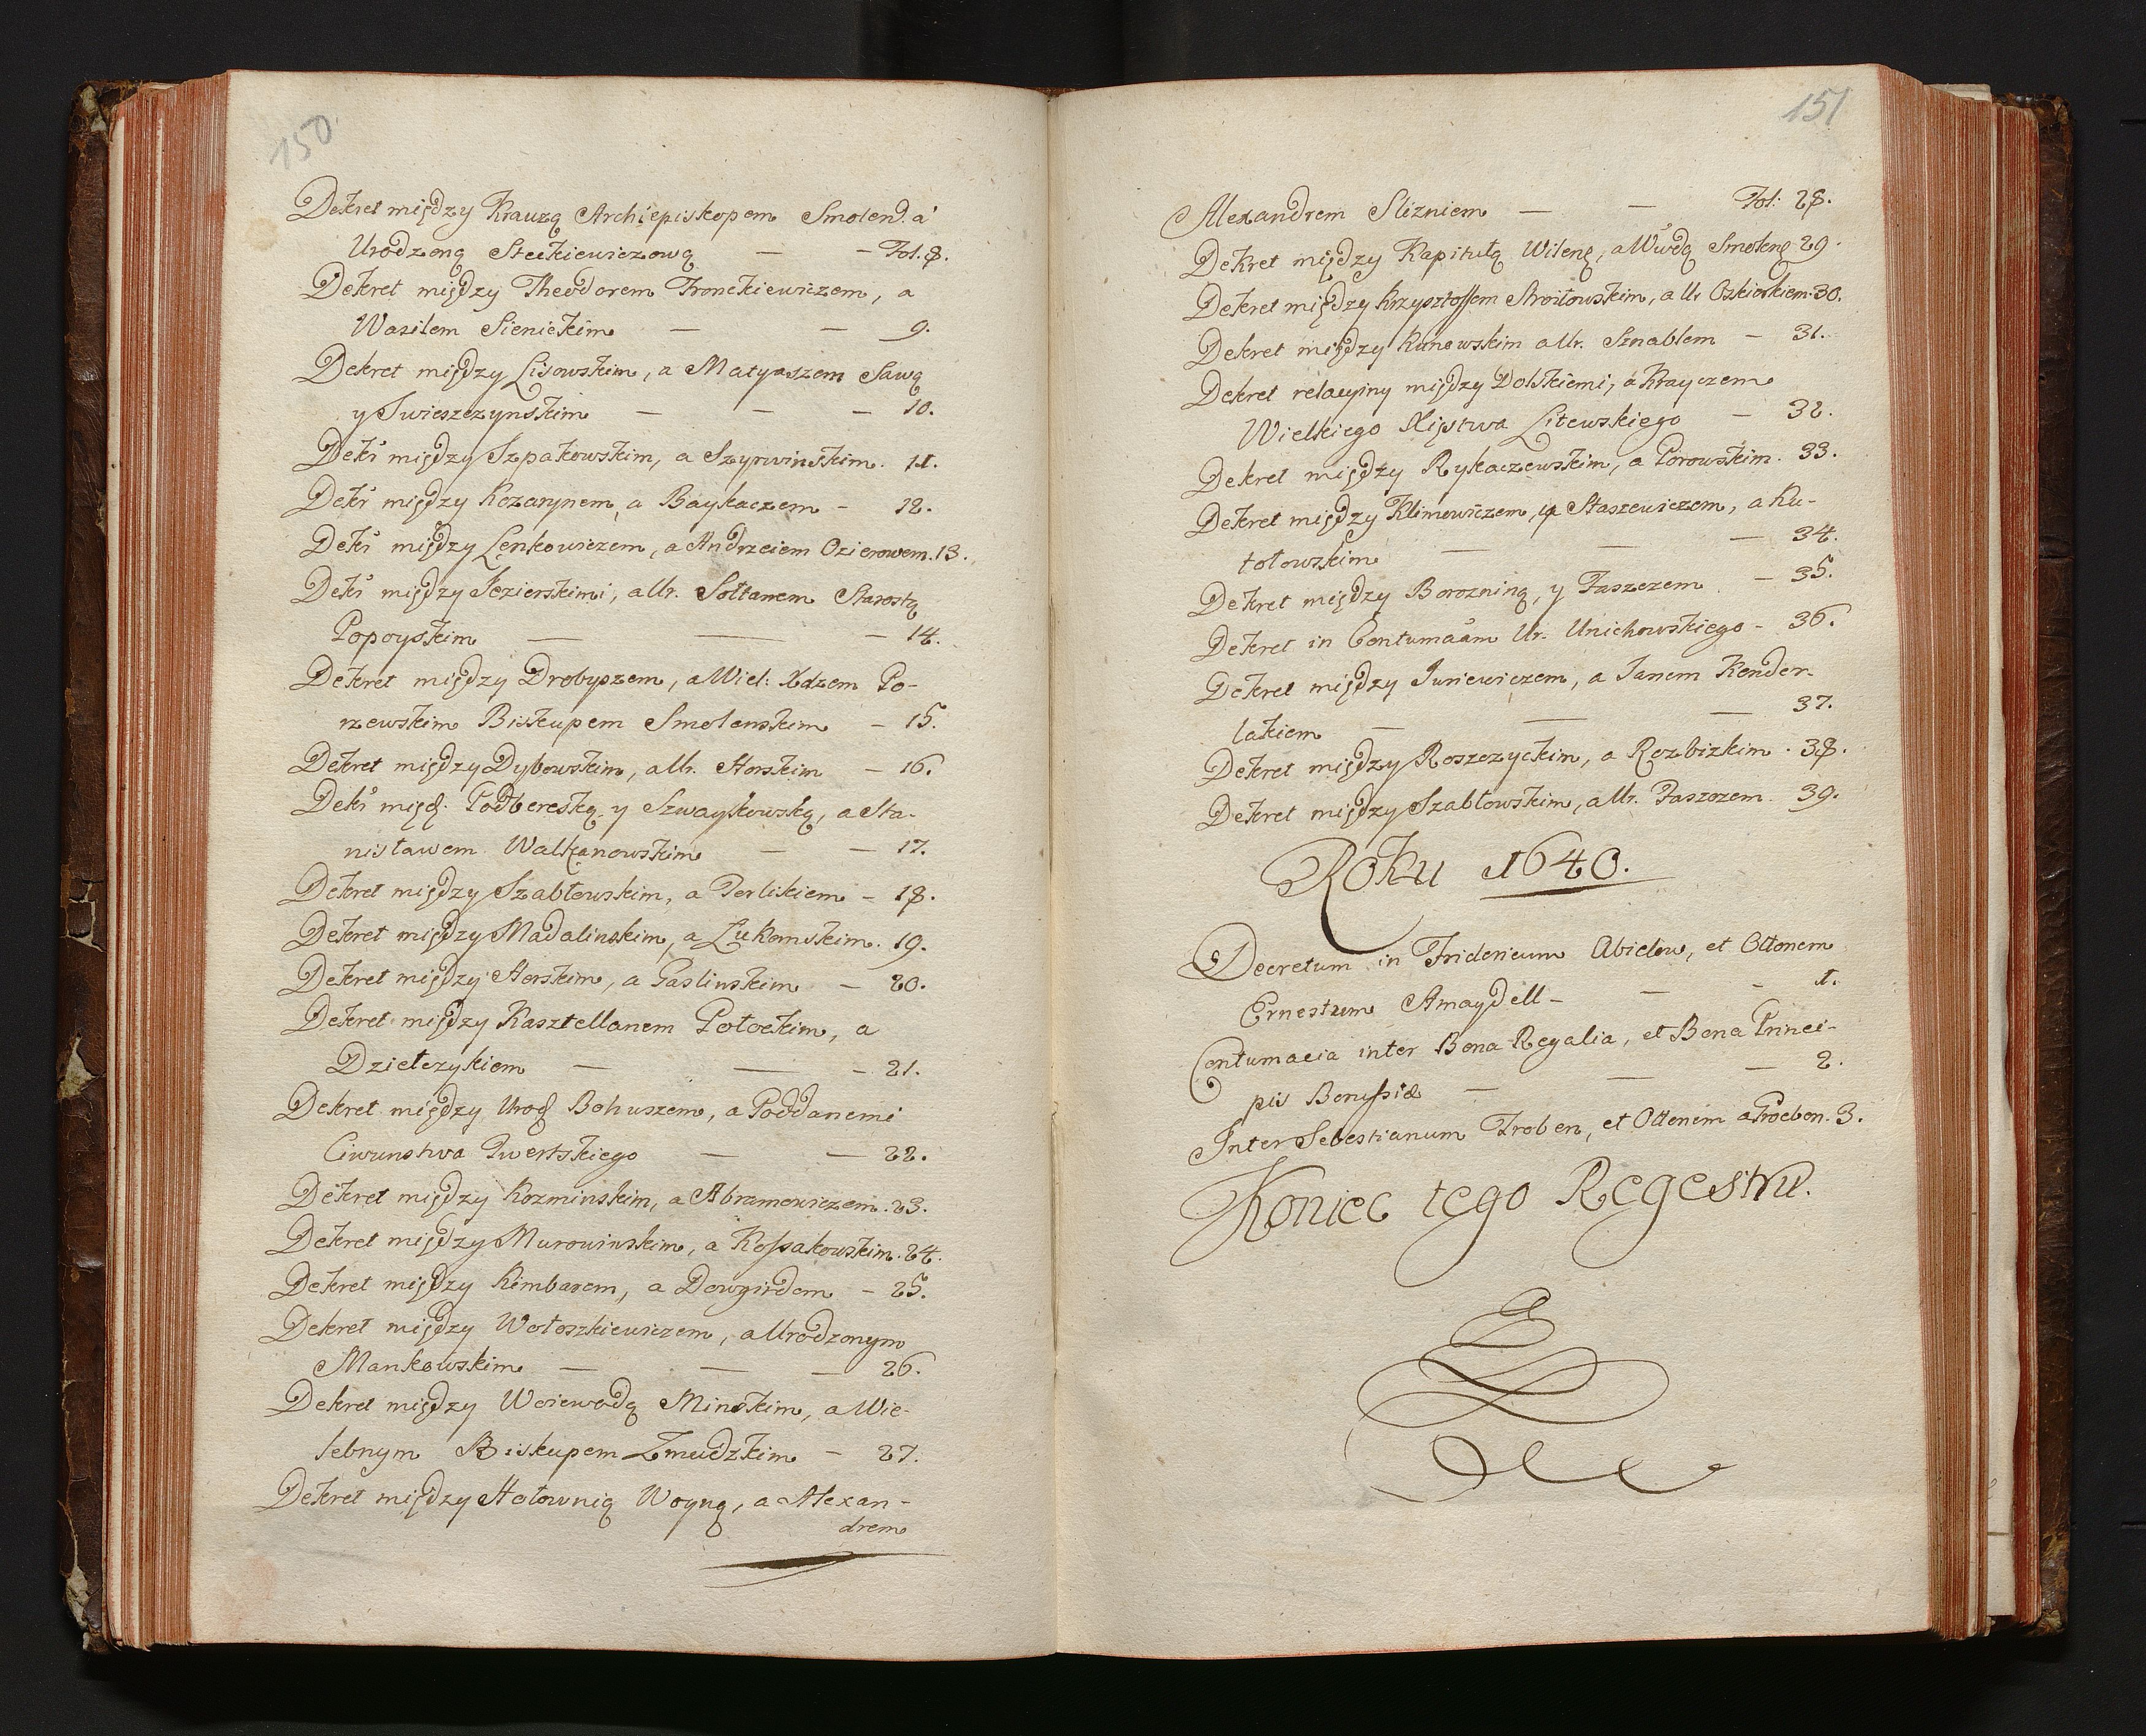 150.
Dekret między Krauzą Archiepiskopem Smolend. a
Urodzoną Steckiewiczową — — Fol. 8.
Dekret między Theodorem Fronckiewiczem, a
Wasilem Sienickim — — 9.
Dekret między Lisowskim, a Matyaszem Sawą
y Swieszczynskim — — — 10.
Dekr między Szpakowskim, a Szyrwinskim. 11.
Dekr między Kozarynem, a Baykaczem — 12.
Dekr między Lenkowiczem, a Andrzeiem Ozierowem. 13.
Dekr między Jezierskimi, a Ur. Sołtanem Starostą
Popoyskim — — — 14.
Dekret między Drobyszem, a Wiel: Xdzem Po-
rzewskim Biskupem Smolenskim — 15.
Dekret między Dybowskim, a Ur. Horskim — 16.
Dekr międ. Podbereską y Szwaykowską, a Sta-
nisławem Walkanowskim — — 17.
Dekret między Szabłowskim, a Perlikiem — 18.
Dekret między Madalinskim, a Łukomskim. 19.
Dekret między Horskim, a Paslinskim — 20.
Dekret między Kasztellanem Połockim, a
Dziełczykiem — — — 21.
Dekret między Urod Bohuszem, a Poddanemi
Ciwunstwa Twertskiego — — 22.
Dekret między Kozminskim, a Abramowiczem. 23.
Dekret między Murowinskim, a Kossakowskim. 24.
Dekret między Kimbarem, a Dowgirdem — 25.
Dekret między Wołoszkiewiczem, a Urodzonym
Mankowskim — — — 26.
Dekret między Woiewodą Minskim, a Wie-
lebnym Biskupem Zmudzkim — 27.
Dekret między Hołownią Woyną, a Alexan-
drem
151
Alexandrem Slizniem — — Fol: 28.
Dekret między Kapitułą Wileną, a Wwdą Smoleną 29.
Dekret między Krzysztoffem Stroiłowskim, a Ur Oskierkiem. 30.
Dekret między Kunowskim a Ur. Sznablem — 31.
Dekret relacyiny między Dolskiemi, a Krayczem
Wielkiego Xięstwa Litewskiego — 32.
Dekret między Rykaczewskim, a Porowskim. 33.
Dekret między Klimowiczem, y Staszewiczem, a Ku-
tołowskim — — — 34.
Dekret między Borozniną, y Faszczem — 35.
Dekret in Contumaciam Ur. Unichowskiego — 36.
Dekret między Juriewiczem, a Janem Kender-
lakiem — — — 37.
Dekret między Roszczyckim, a Rozbizkim. 38.
Dekret między Szabłowskim, a Ur. Faszczem. 39.
Roku 1640.
Decretum in Fridericum Abielow, et Ottonem
Ernestum Amaydell — — — 1.
Contumacia inter Bona Regalia, et Bona Princi-
pis Borussiæ — — — 2.
Inter Sebestianum Froben, et Ottonem a Proeben. 3.
Koniec tego Regestru.